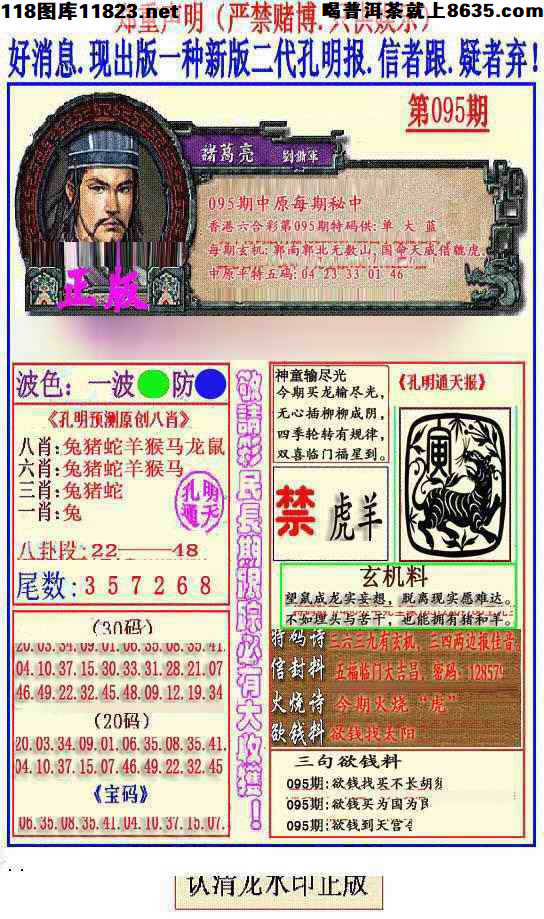 118图库11823.net
喝普洱茶就上8635.com
好消息.现出版一种新版二代孔明报.信者跟.疑者弃!
第095期
諸葛亮
正版
095期中原每期秘中
香港六合彩第095期特码供:单 大 蓝
每期玄机:郭南郭北无数山,国命天威信貔虎.
中原平特五码:04 23 33 01 46
波色: 一波 防
《孔明预测原创八肖》
八肖:兔猪蛇羊猴马龙鼠
六肖:兔猪蛇羊猴马
三肖:兔猪蛇
一肖:兔
孔明
通天
八卦段:22——48
尾数:357268
(30码)
20.03.34.09.01.06.35.08.35.41.
04.10.37.15.30.33.31.28.21.07
46.49.22.32.45.48.09.12.19.34
(20码)
20.03.34.09.01.06.35.08.35.41.
04.10.37.15.07.46.49.22.32.45
《宝码》
06.35.08.35.41.04.10.37.15.07.
敬請彩民長期跟踪必有大收獲!
神童输尽光
今期买龙输尽光,
无心插柳柳成阴,
四季轮转有规律,
双喜临门福星到.
《孔明通天报》
寅
禁 虎羊
玄机料
望鼠成龙实妄想, 脱离现实愿难达。
不如埋头与苦干, 也能拥有猪和羊。
特码诗 三六三九有玄机, 三四两边报佳音
信封料 五福临门大吉昌, 密码: 128579
火烧诗 今期火烧“虎”
欲钱料 欲钱找太阳
三句欲钱料
095期:欲钱找买不长胡
095期:欲钱买为国为
095期:欲钱到天宫
认清龙水印正版